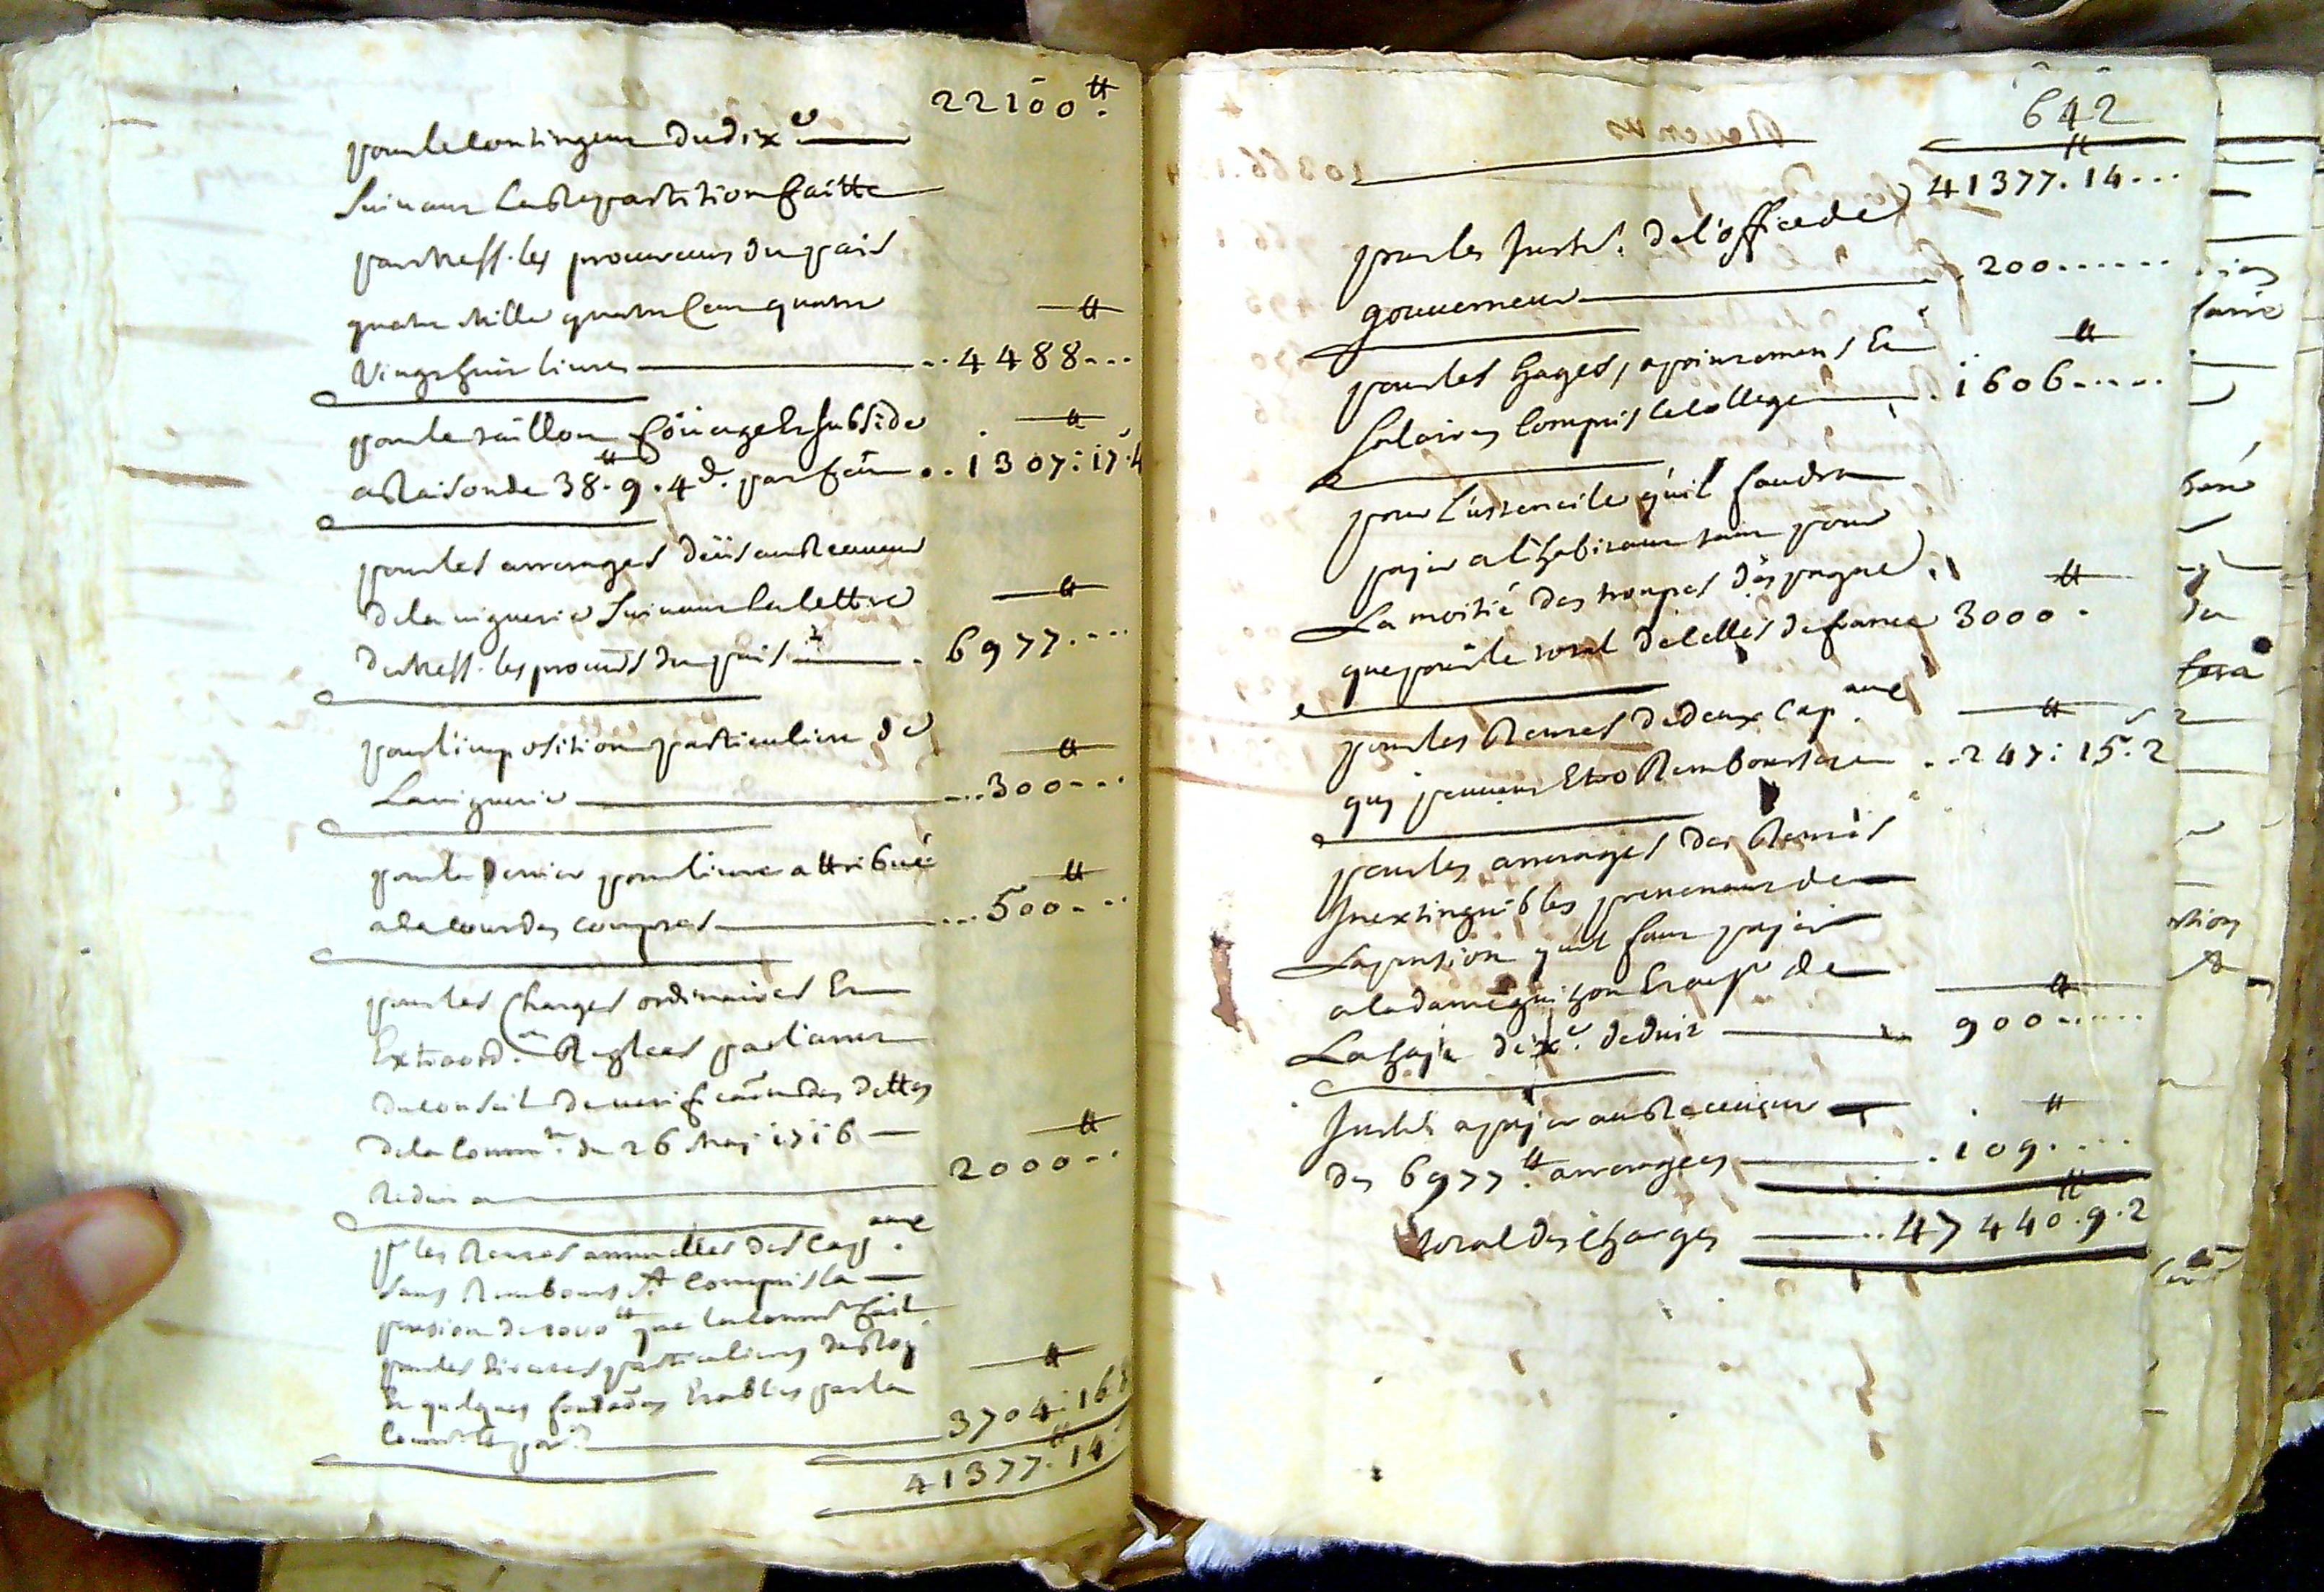 22100 ₶.
pour le contingent du dix.e
suivant la repartition faitte
par mess. les procureurs du pais
quatre mille quatre cent quatre
vingt huit livres ..4488...
pour le taillon foüage et subside
a raison de 38.9.4 d. par feu ..1307:17.4
pour les arrerages deüs au receveur
de la viguerie suivant la lettre
de mess. les procurs du pais .6977....
pour l'imposition particuliere de
la viguerie ...300...
pour le denier pour livre attribué
a la cour des comptes ...500...
pour les charges ordinaires et
extraord.res reglées par l'arret
du conseil de verification des dettes
de la comm.té du 26 may 1716
reduit a 2000...
p.r les rentes annuelles des cap.aux
sans rembours.t compris la
pension de 1000 ₶ que la comm.té fait
pour les particuliers
et quelques fondaons establies par la
comm.té 3704:16.8
41377.14
642
₶
41377.14...
pour les Interts. de l'office de
gouverneur .200......
pour les gages, apointements et
salaires compris le college .1606.....
pour l'ustencile qu'il faudra
payer a l'habitant tant pour
la moitié des troupes d'espagne
que pour le total de celles de france 3000.
pour les rentes de deux cap.aux
quy peuvent etre rembourses ..247:15.2
pour les arrerages des rentes
Inextinguibles provenant de
la pension qu'il faut payer
a la dame
la dix.e deduit 900......
Interts a payer au receveur
des 6977 ₶. arrerages .109....
total des charges ..47440.9.2